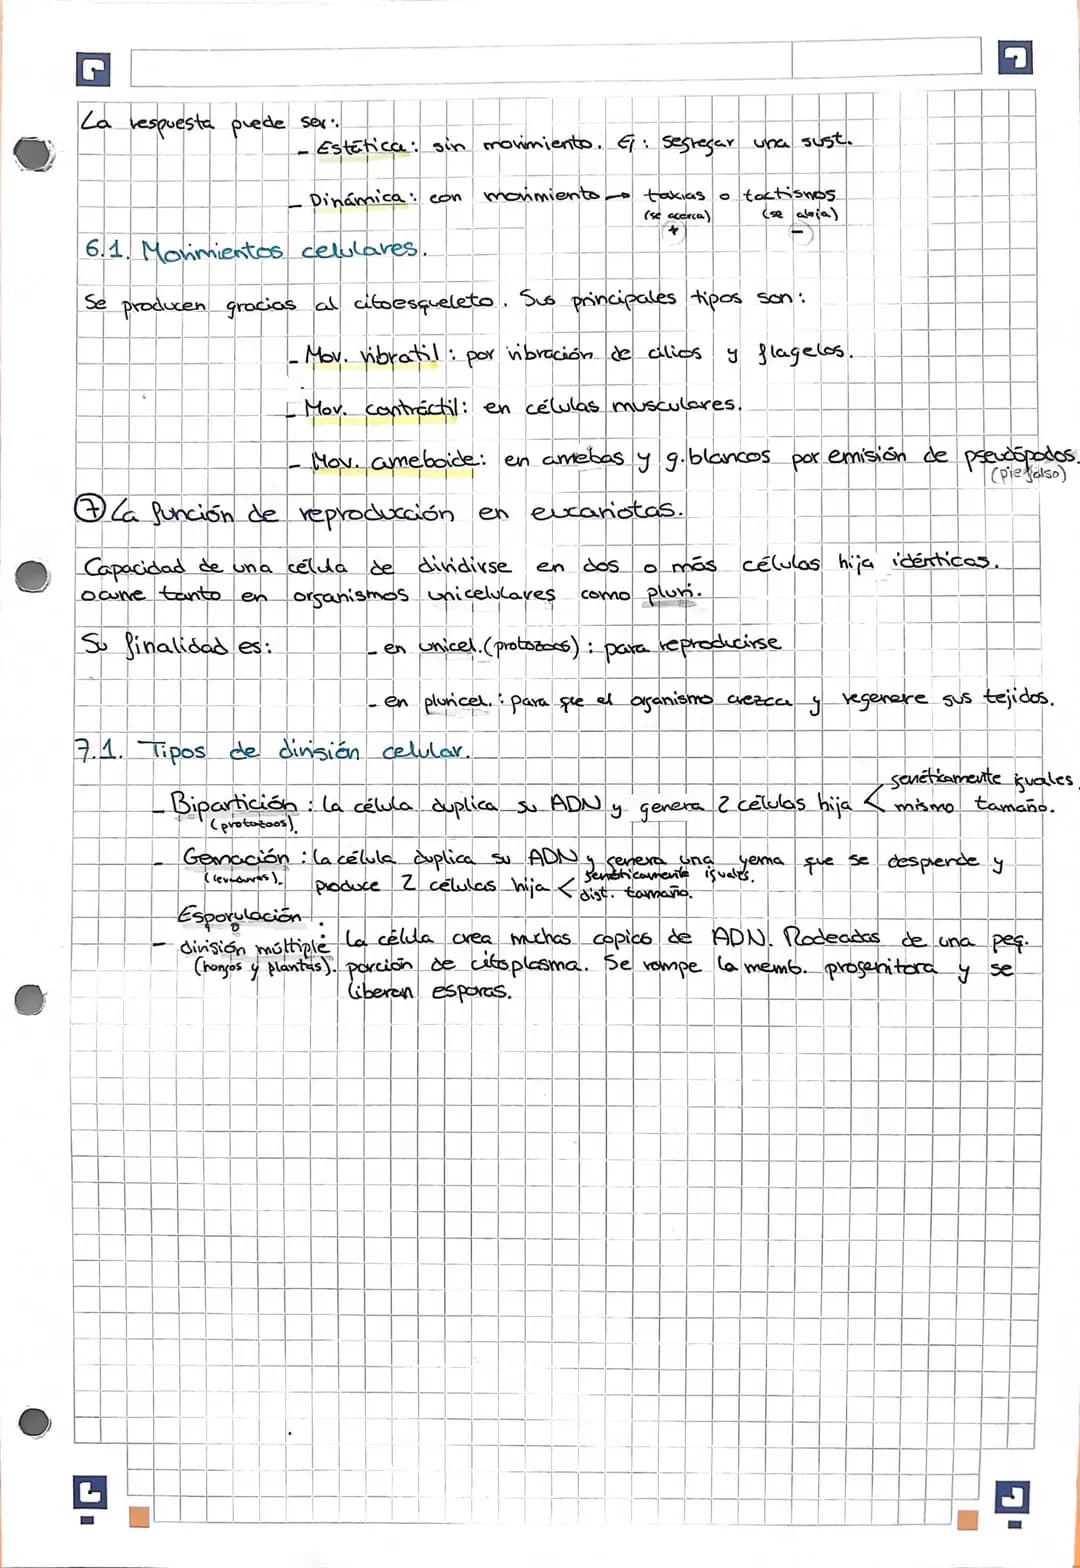 La respuesta puede ser:
- Estática: sin movimiento. Ej: segregar una sust.
- Dinámica: con movimiento → taxias o tactismos
(se acerca) (se aleja)
+ -
6.1. Movimientos celulares.
Se producen gracias al citoesqueleto. Sus principales tipos son:
- Mov. vibratil: por vibración de cilios y flagelos.
- Mov. contráctil: en células musculares.
- Mov. ameboide: en amebas y g.blancos por emisión de pseudópodos.
(pie falso)
7 La función de reproducción en eucariotas.
Capacidad de una célula de dividirse en dos o más células hija idénticas.
ocurre tanto en organismos unicelulares como pluri.
Su finalidad es: - en unicel.(protozoos): para reproducirse
- en pluricel.: para que el organismo crezca y regenere sus tejidos.
7.1. Tipos de división celular.
genéticamente iguales.
- Bipartición: la célula duplica su ADN y genera 2 células hija < mismo tamaño.
(protozoos).
- Gemación: la célula duplica su ADN y genera una yema que se desprende y
(levaduras). produce 2 células hija < genéticamente iguales.
dist. tamaño.
Esporulación
o
- división múltiple: la célula crea muchas copias de ADN. Rodeadas de una peq.
(hongos y plantas). porción de citoplasma. Se rompe la memb. progenitora y se
liberan esporas.